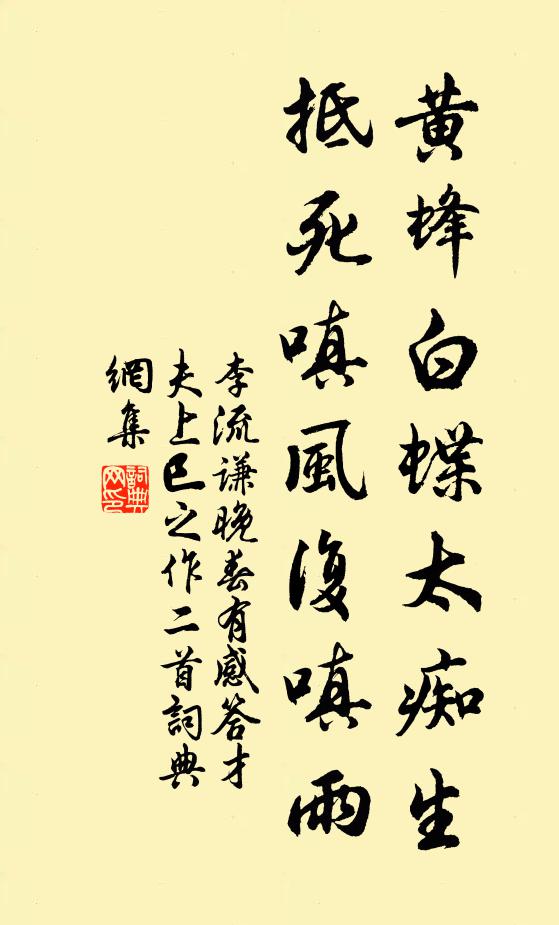 黄蜂白蝶太痴生
抵死嗔風復嗔雨
李流謙晚春有感答才
夫上巳之作二首詞典
網集
詞典
网印